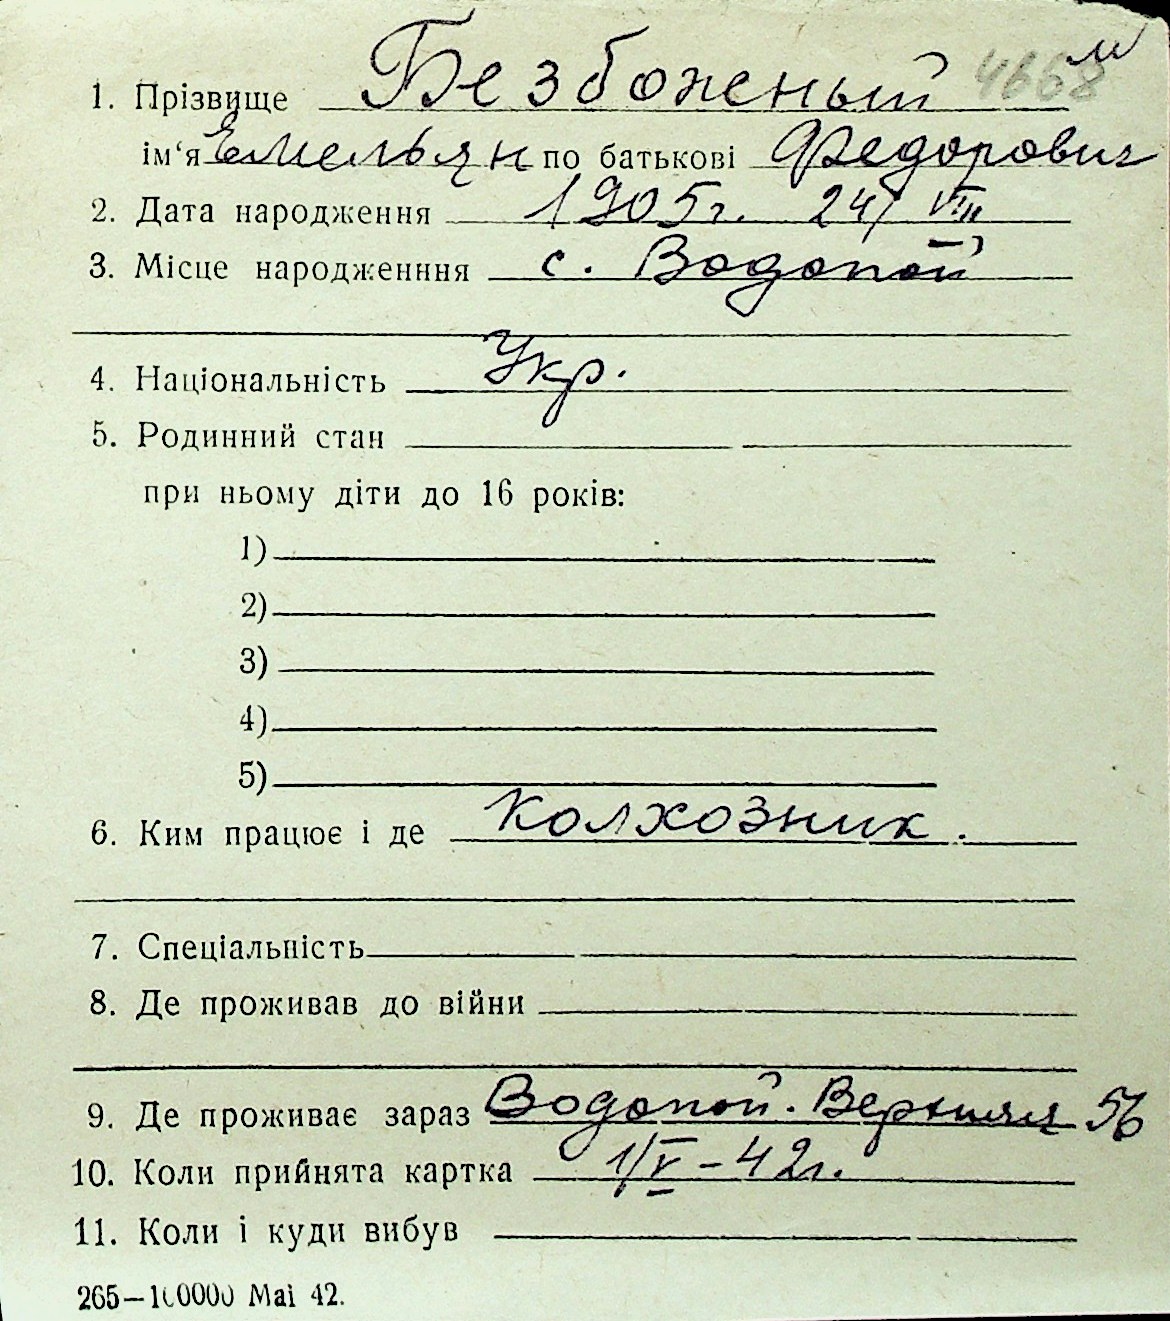 4668 м
1. Прізвище Безбоженый
ім‘я Емельян по батькові Федорович
2. Дата народження 1905г. 24/VIII
3. Місце народженння с. Водопой
4. Національність Укр.
5. Родинний стан
при ньому діти до 16 років:
1)
2)
3)
4)
5)
6. Ким працює і де колхозник.
7. Спеціальність
8. Де проживав до війни
9. Де проживає зараз Водопой. Верхняя 56
10. Коли прийнята картка 1/V-42г.
11. Коли і куди вибув
265—100000 Mai 42.